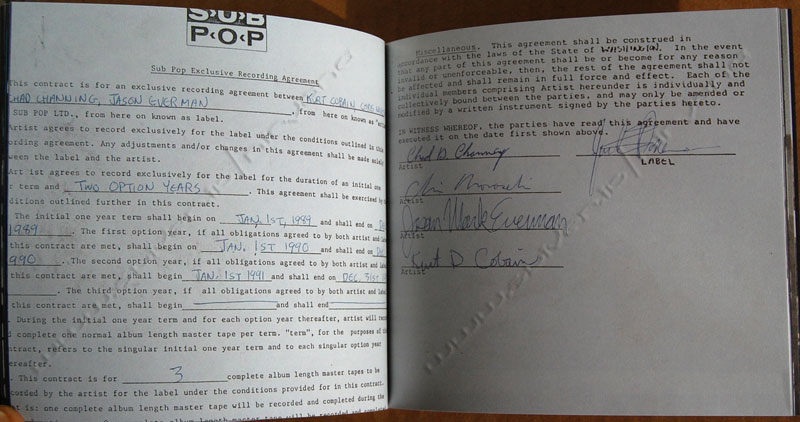 S·U·B
P·O·P
Sub Pop Exclusive Recording Agreement
This contract is for an exclusive recording agreement between KURT COBAIN, CHRIS
CHAD CHANNING, JASON EVERMAN , from here on known as
SUB POP LTD., from here on known as label.
Artist agrees to record exclusively for the label under the conditions outlined in this
ording agreement. Any adjustments and/or changes in this agreement shall be made solely
ween the label and the artist.
Art ist agrees to record exclusively for the label for the duration of an initial one
r term and TWO OPTION YEARS . This agreement shall be exercised by
ditions outlined further in this contract.
The initial one year term shall begin on JAN. 1ST, 1989 and shall end on
1989 . The first option year, if all obligations agreed to by both artist and
this contract are met, shall begin on JAN. 1ST 1990 and shall end on
990 . The second option year, if all obligations agreed to by both artist and
this contract are met, shall begin JAN. 1ST 1991 and shall end on DEC. 31ST
. The third option year, if all obligations agreed to by both artist and label
this contract are met, shall begin and shall end
During the initial one year term and for each option year thereafter, artist will record
d complete one normal album length master tape per term. "term", for the purposes of
ntract, refers to the singular initial one year term and to each singular option year
ereafter.
. This contract is for 3 complete album length master tapes to be
corded by the artist for the label under the conditions provided for in this contract.
at is: one complete album length master tape will be recorded and completed during the
Miscellaneous. This agreement shall be construed in
accordance with the laws of the State of WASHINGTON. In the event
that any part of this agreement shall be or become for any reason
invalid or unenforceable, then, the rest of the agreement shall not
be affected and shall remain in full force and effect. Each of the
individual members comprising Artist hereunder is individually and
collectively bound between the parties, and may only be amended or
modified by a written instrument signed by the parties hereto.
IN WITNESS WHEREOF, the parties have read this agreement and have
executed it on the date first shown above.
Chad B. Channing
Artist
LABEL
Artist
Jason Mark Everman
Artist
Kurt D Cobain
Artist